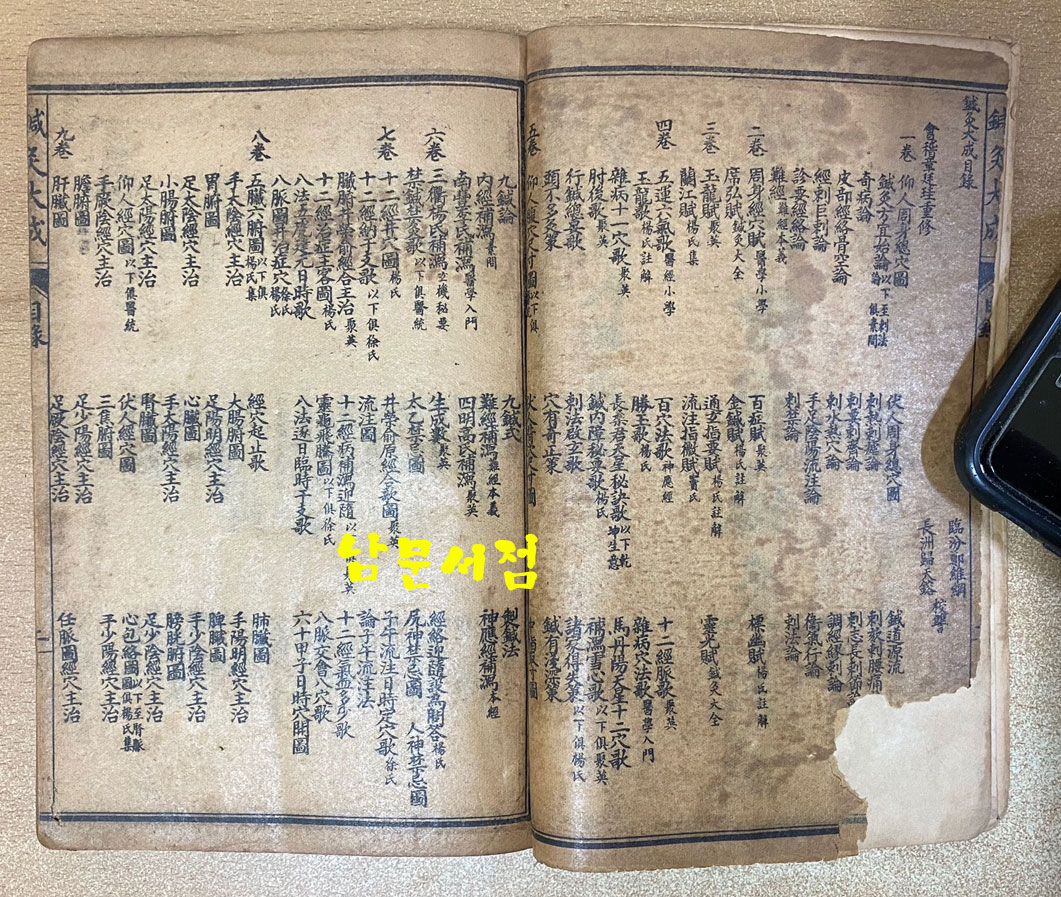 鍼灸大成
鍼灸大成目錄
會稽章廷珪重修 臨汾鄭維綱
長洲歸天鎔 校讐
一卷 仰人周身總穴圖 伏人周身總穴圖 鍼道源流
鍼灸方宜始論 以下至刺法論俱素問 刺熱刺瘧論 刺欬刺腰痛
奇病論 刺要刺齊論 刺志長刺節
皮部經絡骨空論 刺水熱穴論 調經繆刺論
經刺巨刺論 手足陰陽流注論
診要經絡論 刺禁論 刺法論
難經 難經本義
二卷 周身經穴賦 醫學小學 百症賦 聚英 標幽賦 楊氏註解
席弘賦 鍼灸大全 金鍼賦 楊氏註解 靈光賦 鍼灸大全
三卷 玉龍賦 聚英 通玄指要賦 楊氏註解
蘭江賦 楊氏集 流注指微賦 竇氏
四卷 五運六氣歌 醫經小學 百穴法歌 神應經 十二經脈歌 聚英
玉龍歌 楊氏註解 勝玉歌 楊氏 雜病穴法歌 醫學入門
雜病十一穴歌 聚英 長桑君天星秘訣歌 以下乾坤生意 馬丹陽天星十二穴歌
肘後歌 聚英 鍼內障秘要歌 楊氏 補瀉雪心歌 以下俱聚英
行鍼總要歌 刺法啟玄歌 諸家得失策 以下俱楊氏
頭不多灸策 穴有奇正策 鍼有淺深策
五卷
九鍼論 九鍼式 製鍼法
內經補瀉 素問 難經補瀉 難經本義 神應經補瀉 本經
南豐李氏補瀉 醫學入門 四明高氏補瀉 聚英
六卷 三衢楊氏補瀉 玄機秘要 生成數 聚英 經絡迎隨設為問答 楊氏
禁鍼禁灸歌 以下俱醫統 太乙 圖 尻神禁忌圖 人神禁忌圖
七卷 十二經井穴圖 楊氏 井滎俞原經合歌圖 聚英 子午流注日時定穴歌 徐氏
十二經納子支歌 以下俱徐氏 流注圖 論子午流注法
臟腑井滎俞經合主治 聚英 十二經病補瀉迎隨 十二經氣血多少歌
十二經治症主客圖 楊氏 靈龜飛騰圖 以下俱徐氏 八脈交會八穴歌
八法五虎建元日時歌 八法逐日臨時干支歌 六十甲子日時穴開圖
八脈圖并治症穴 徐氏 楊氏
八卷 五臟六腑圖 以下俱楊氏集 經穴起止歌 肺臟圖
手太陰經穴主治 大腸腑圖 手陽明經穴主治
胃腑圖 足陽明經穴主治 脾臟圖
足太陰經穴主治 心臟圖 手少陰經穴主治
小腸腑圖 手太陽經穴主治 膀胱腑圖
足太陽經穴主治 腎臟圖 足少陰經穴主治
仰人經穴圖 以下俱醫統 伏人經穴圖 心包絡圖
手厥陰經穴主治 三焦腑圖 手少陽經穴主治
膽腑圖 足少陽經穴主治
九卷 肝臟圖 足厥陰經穴主治 任脈圖經穴主治
鍼灸大成 目錄
남문서점